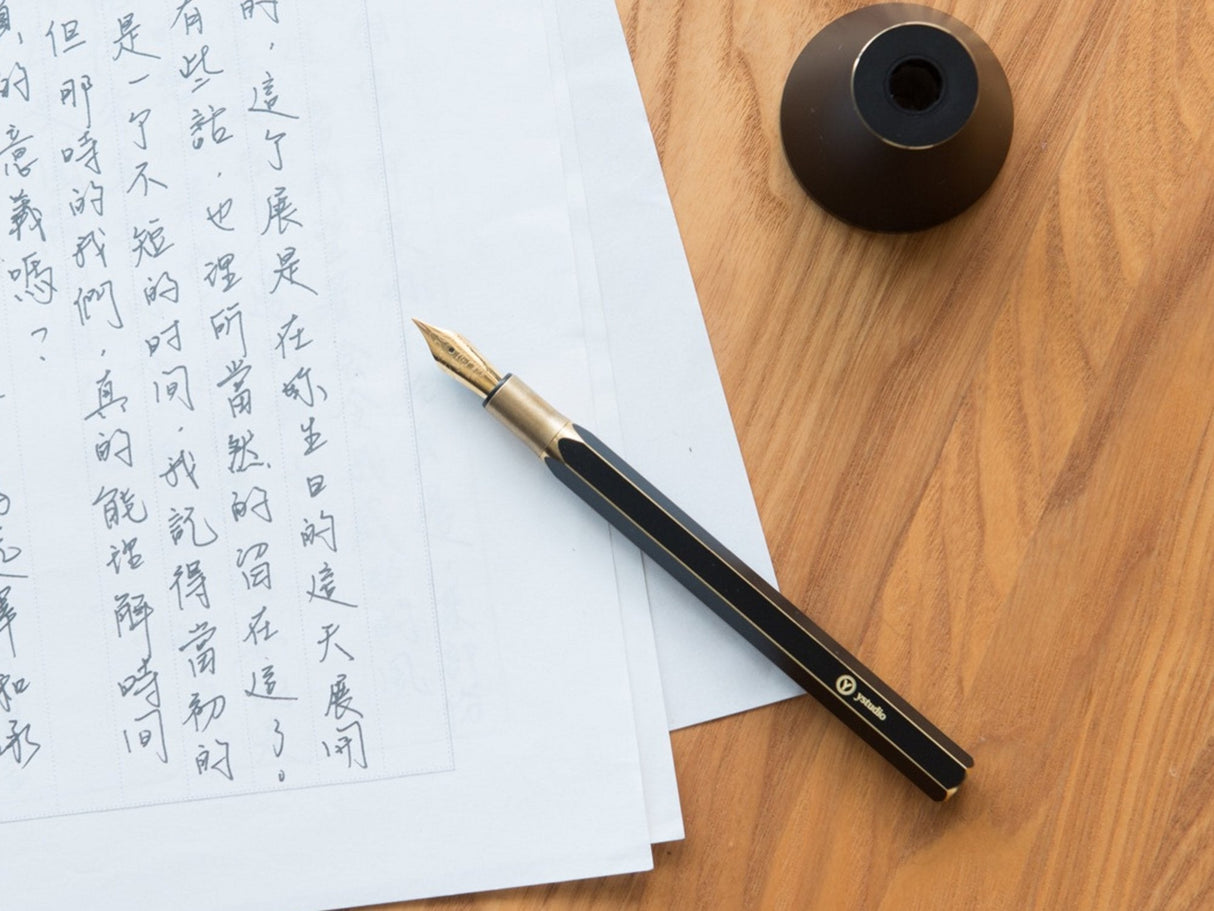 的，這个展是在妳生日的這天展開
有些話，也理所當然的留在這了。
是一个不短的时间，我記得當初的
但那時的我們，真的能理解時间
的意義嗎？
和
ystudio